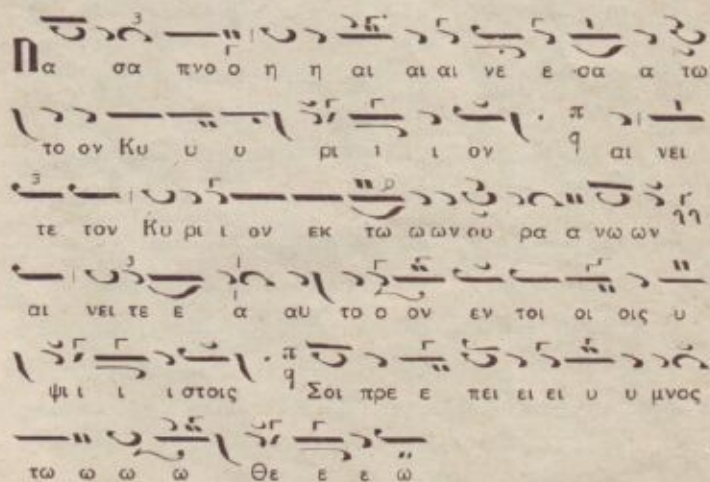 Πα σα πνο ο η η αι αι αι νε ε σα α τω
το ον Κυ υ υ ρι ι ι ον π q αι νει
τε τον Κυ ρι ι ον εκ τω ω ων ου ρα α νω ων
αι νει τε ε α αυ το ο ον εν τοι οι οις υ
ψι ι ι ι στοις π q Σοι πρε ε πει ει ει υ υ μνος
τω ω ω ω Θε ε ε ω